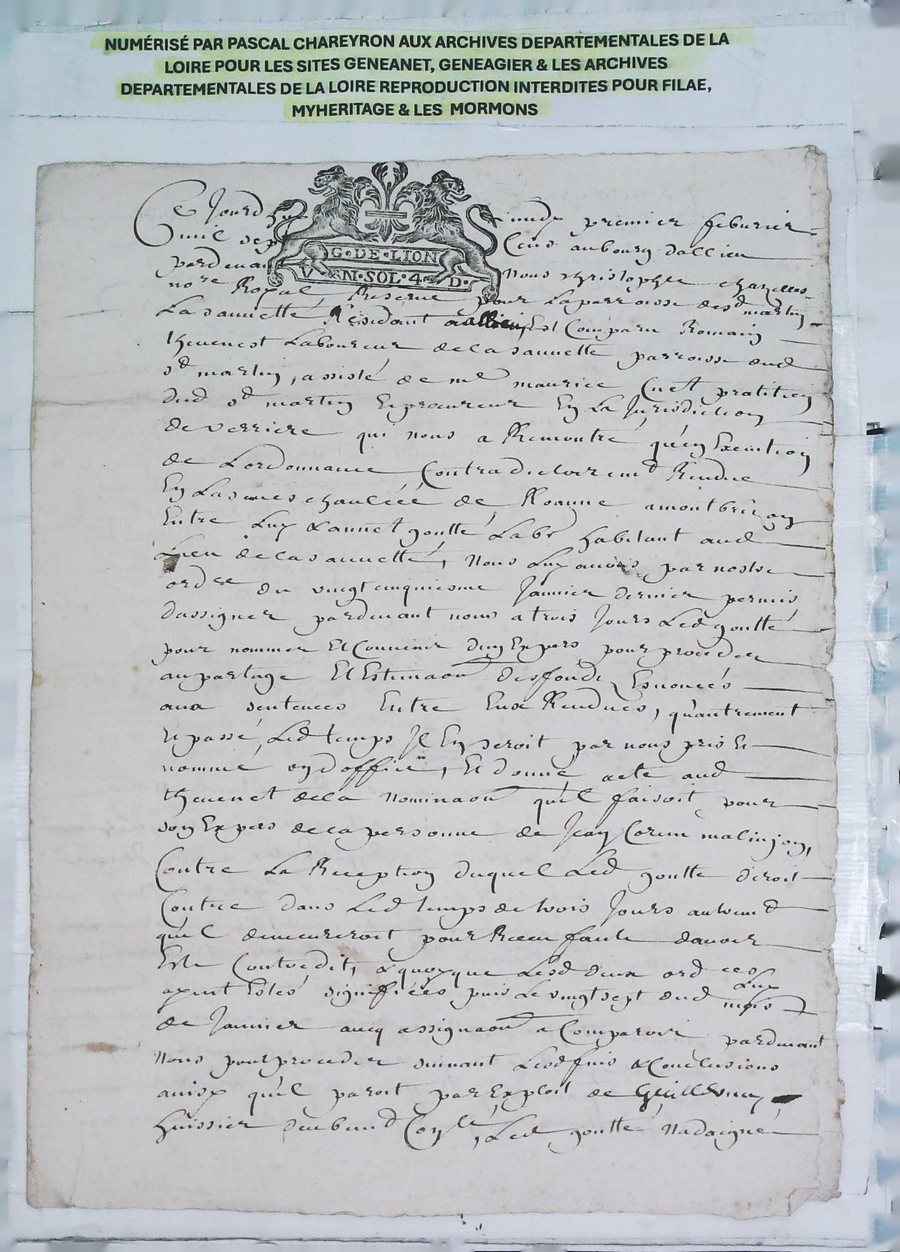 NUMÉRISÉ PAR PASCAL CHAREYRON AUX ARCHIVES DEPARTEMENTALES DE LA
LOIRE POUR LES SITES GENEANET, GENEAGIER & LES ARCHIVES
DEPARTEMENTALES DE LA LOIRE REPRODUCTION INTERDITES POUR FILAE,
MYHERITAGE & LES MORMONS
G·DE·LION
V N·SOL·4 D·
Ce Jourdhuy lundy premier febvrier
mil sept Cens au bourg dallieu
pardevant Nous christophe chazelles
nore Royal Reservé pour La parroisse de st martin
La sauveté Residant a allieu, Est Comparu Romain
thevenet Laboureur de la sauvetté parroisse dud
st martin, assisté de me maurice praticien
dud st martin Et procureur En La Jurisdiction
de verriere qui nous a Remontré qu'en Execution
de Lordonnance Contradictoiremt Rendue
En La senes chaucée de Roanne a montbrizon
Entre Luy & annet goutte Labr habitant aud
Lieu de la sauvetté, Nous Luy avons par nostre
ordre du vingtcinquiesme Janvier dernier permis
dassigner pardevant nous a trois Jours Led goutte
pour nommer Et Convenir dun Expers pour proceder
au partage Et Estimaon des fonds Esnoncés
aux sentences Entre Eux Rendues, qu'autrement
Et passé Led temps Il En seroit par nous pris Et
nommé un doffice, Et donné acte aud
thevenet de la Nominaon qu'il faisoit pour
son Expers de la personne de Jean malinjon,
Contre La Reception duquel Led goutte diroit
Contre dans Led temps de trois Jours autremt
qu'il demeureroit pour Receu faute davoir
Esté Contredit, & quoyque Lesd deux ordces Luy
ayent Estés signiffiées puis Le vingt sept dud mois
de Janvier avecq assignaon a Comparoir pardevant
Nous pour proceder suivant Lesd fins & Conclusions
ainsy qu'il paroit par Exploit de Guillermy
huissier Led goutte Na daigné